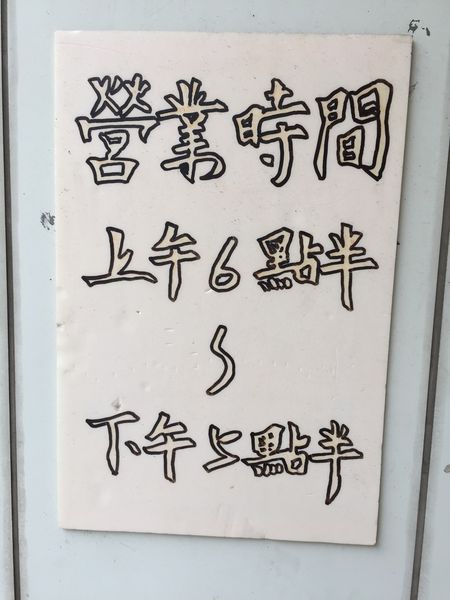 營業時間
上午6點半
~
下午5點半